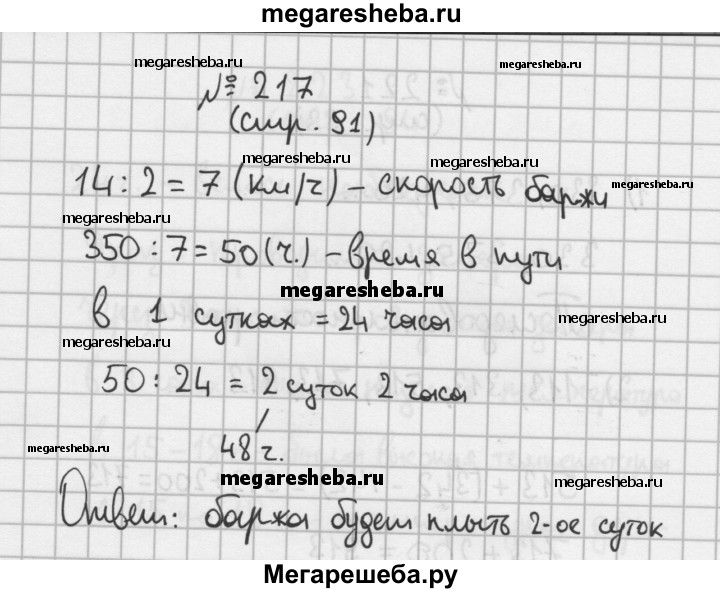 megaresheba.ru
megaresheba.ru
megaresheba.ru
№ 217
(стр. 91)
megaresheba.ru
megaresheba.ru
14 : 2 = 7 (км/ч) – скорость баржи
megaresheba.ru
megaresheba.ru
350 : 7 = 50 (ч.) – время в пути
megaresheba.ru
в 1 сутках = 24 часа
megaresheba.ru
megaresheba.ru
50 : 24 = 2 суток 2 часа
48 ч.
megaresheba.ru
megaresheba.ru
megaresheba.ru
Ответ: баржа будет плыть 2-ое суток
Мегарешеба.ру